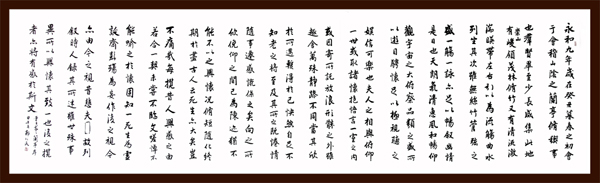 永和九年歲在癸丑暮春之初會
于會稽山陰之蘭亭修禊事
也群賢畢至少長咸集此地
有崇山峻領茂林修竹又有清流激
湍暎帶左右引以為流觴曲水
列坐其次雖無絲竹管弦之
盛一觴一詠亦足以暢敘幽情
是日也天朗氣清惠風和暢仰
觀宇宙之大俯察品類之盛所
以遊目騁懷足以極視聽之
娛信可樂也夫人之相與俯仰
一世或取諸懷抱悟言一室之內
或因寄所託放浪形骸之外雖
趣舍萬殊靜躁不同當其欣
於所遇暫得於己快然自足不
知老之將至及其所之既惓情
隨事遷感慨係之矣向之所
欣俛仰之間以為陳迹猶不
能不以之興懷況脩短隨化終
期於盡古人云死生亦大矣豈
不痛哉每攬昔人興感之由
若合一契未嘗不臨文嗟悼不
能喻之於懷固知一死生為虛
誕齊彭殤為妄作後之視今
亦由今之視昔悲夫故列
敘時人錄其所述雖世殊事
異所以興懷其致一也後之攬
者亦將有感於斯文